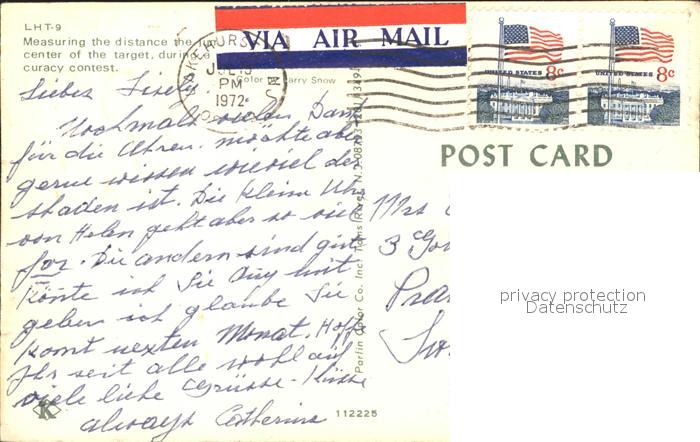 LHT-9
Measuring the distance the
center of the target, during
curacy contest.
Color arry Snow
VIA AIR MAIL
PM
1972
UNITED STATES 8c
UNITED STATES 8c
POST CARD
Liebes Lisely
Nochmals vielen Dank
für die Uhren. möchte aber
gerne wissen wieviel der
shaden ist. Die kleine Uhr
von Helen geht aber so viel
for. Die andern sind gut
könte ich Sie Ruy mit
geben ich glaube Sie
komt nexten Monat. Hoffe
Ihr seit alle wohl auf
viele liebe Grüsse - Küsse
always Catherine
Parlin Color Co. Inc. Toms River, N.J. 08753
Mrs
3
Pra
K
112225
privacy protection
Datenschutz